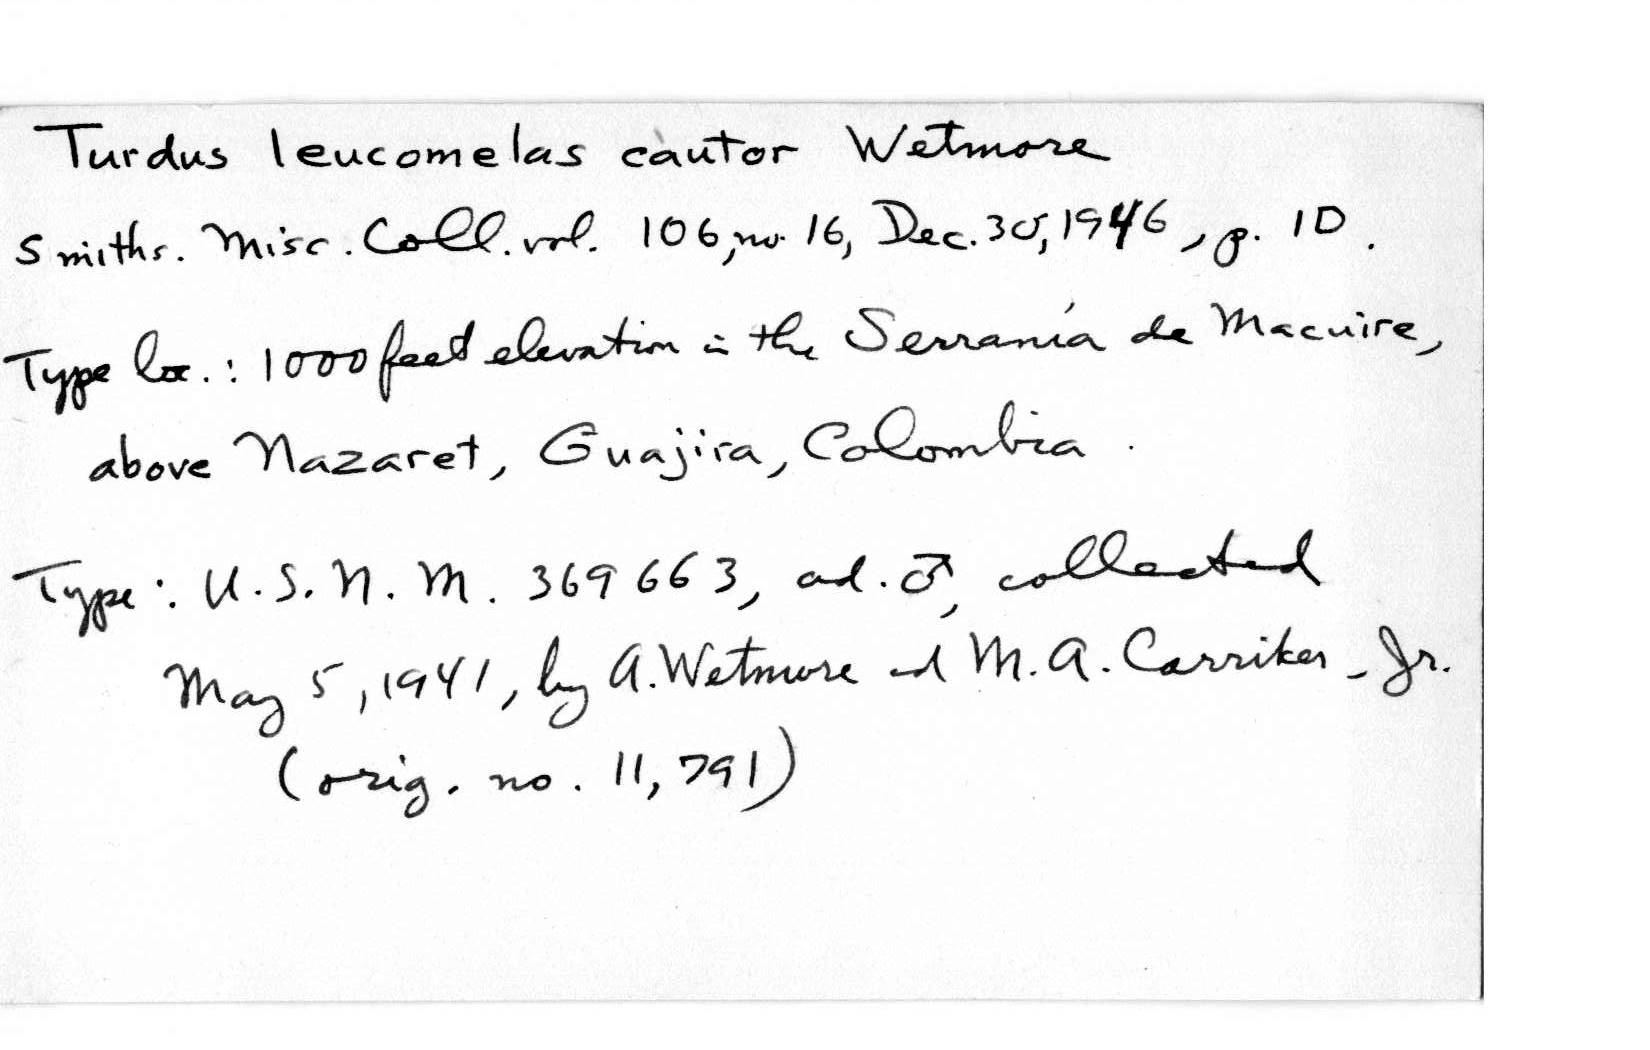 Turdus leucomelas cautor Wetmore
Smiths. Misc. Coll. vol. 106, no. 16, Dec. 30, 1946, p. 10.
Type loc.: 1000 feet elevation in the Serranía de Macuire,
above Nazaret, Guajira, Colombia.
Type: U.S.N.M. 369663, ad. ♂, collected
May 5, 1941, by A. Wetmore and M. A. Carriker, Jr.
(orig. no. 11,791)